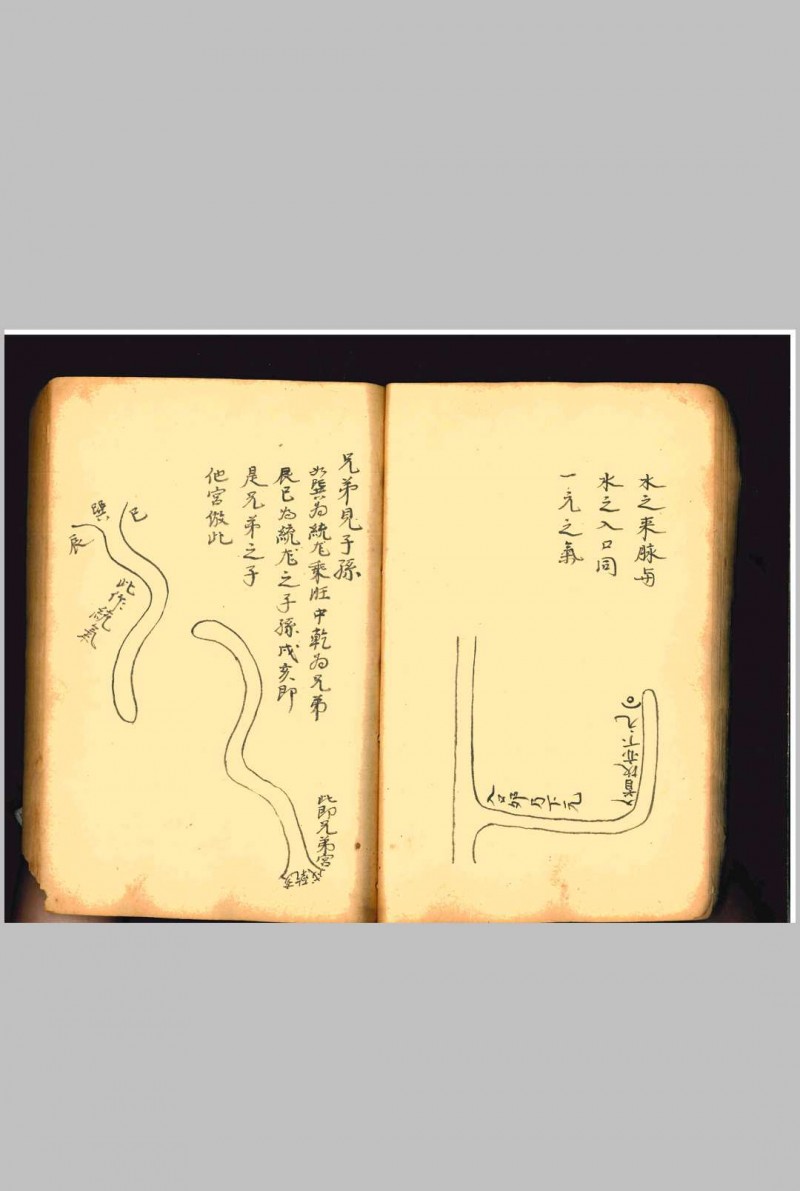 水之来脉与
水之入口同
一元之氣
入口卯乃下元
兄弟見子孫
如巽为統龙乘旺中乾为兄弟
辰巳为統龙之子孫戌亥即
是兄弟之子
他宮倣此
巳
巽
辰
此作統氣
此即兄弟宮
戌乾亥